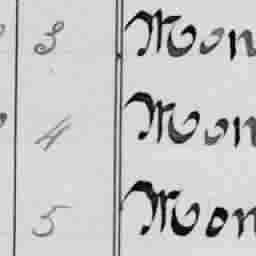 3 Mon
4 Mon
5 Mon